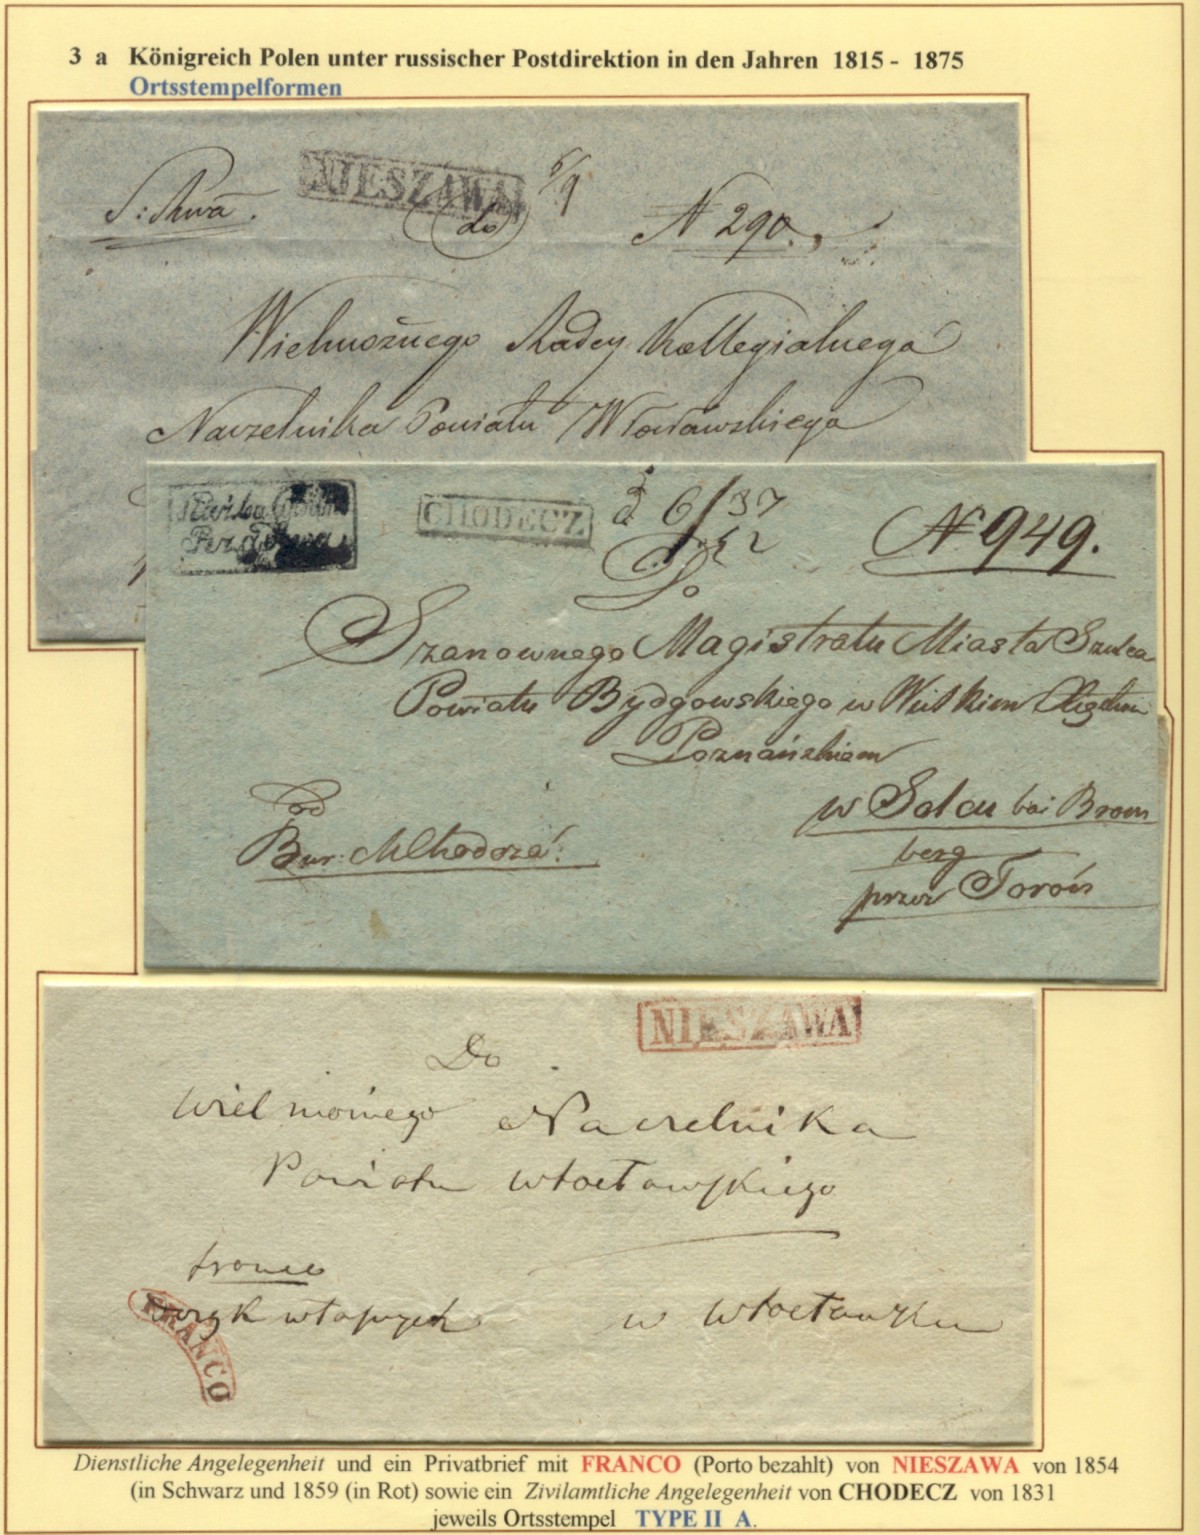 3 a Königreich Polen unter russischer Postdirektion in den Jahren 1815 - 1875
Ortsstempelformen
NIESZAWA
do
N 290.
Wielmożnego Radcy Kollegialnego
Naczelnika Powiatu Włocławskiego
CHODECZ
6/37
N 949.
Do
Szanownego Magistratu Miasta Szulca
Powiatu Bydgowskiego w Wielkiem
Poznańskiem
od
w Solcu bei Brom
berg
przez Toroń
NIESZAWA
Do
Wielmożnego Naczelnika
Powiatu Włocławskiego
franco
w Włocławku
FRANCO
Dienstliche Angelegenheit und ein Privatbrief mit FRANCO (Porto bezahlt) von NIESZAWA von 1854
(in Schwarz und 1859 (in Rot) sowie ein Zivilamtliche Angelegenheit von CHODECZ von 1831
jeweils Ortsstempel TYPE II A.